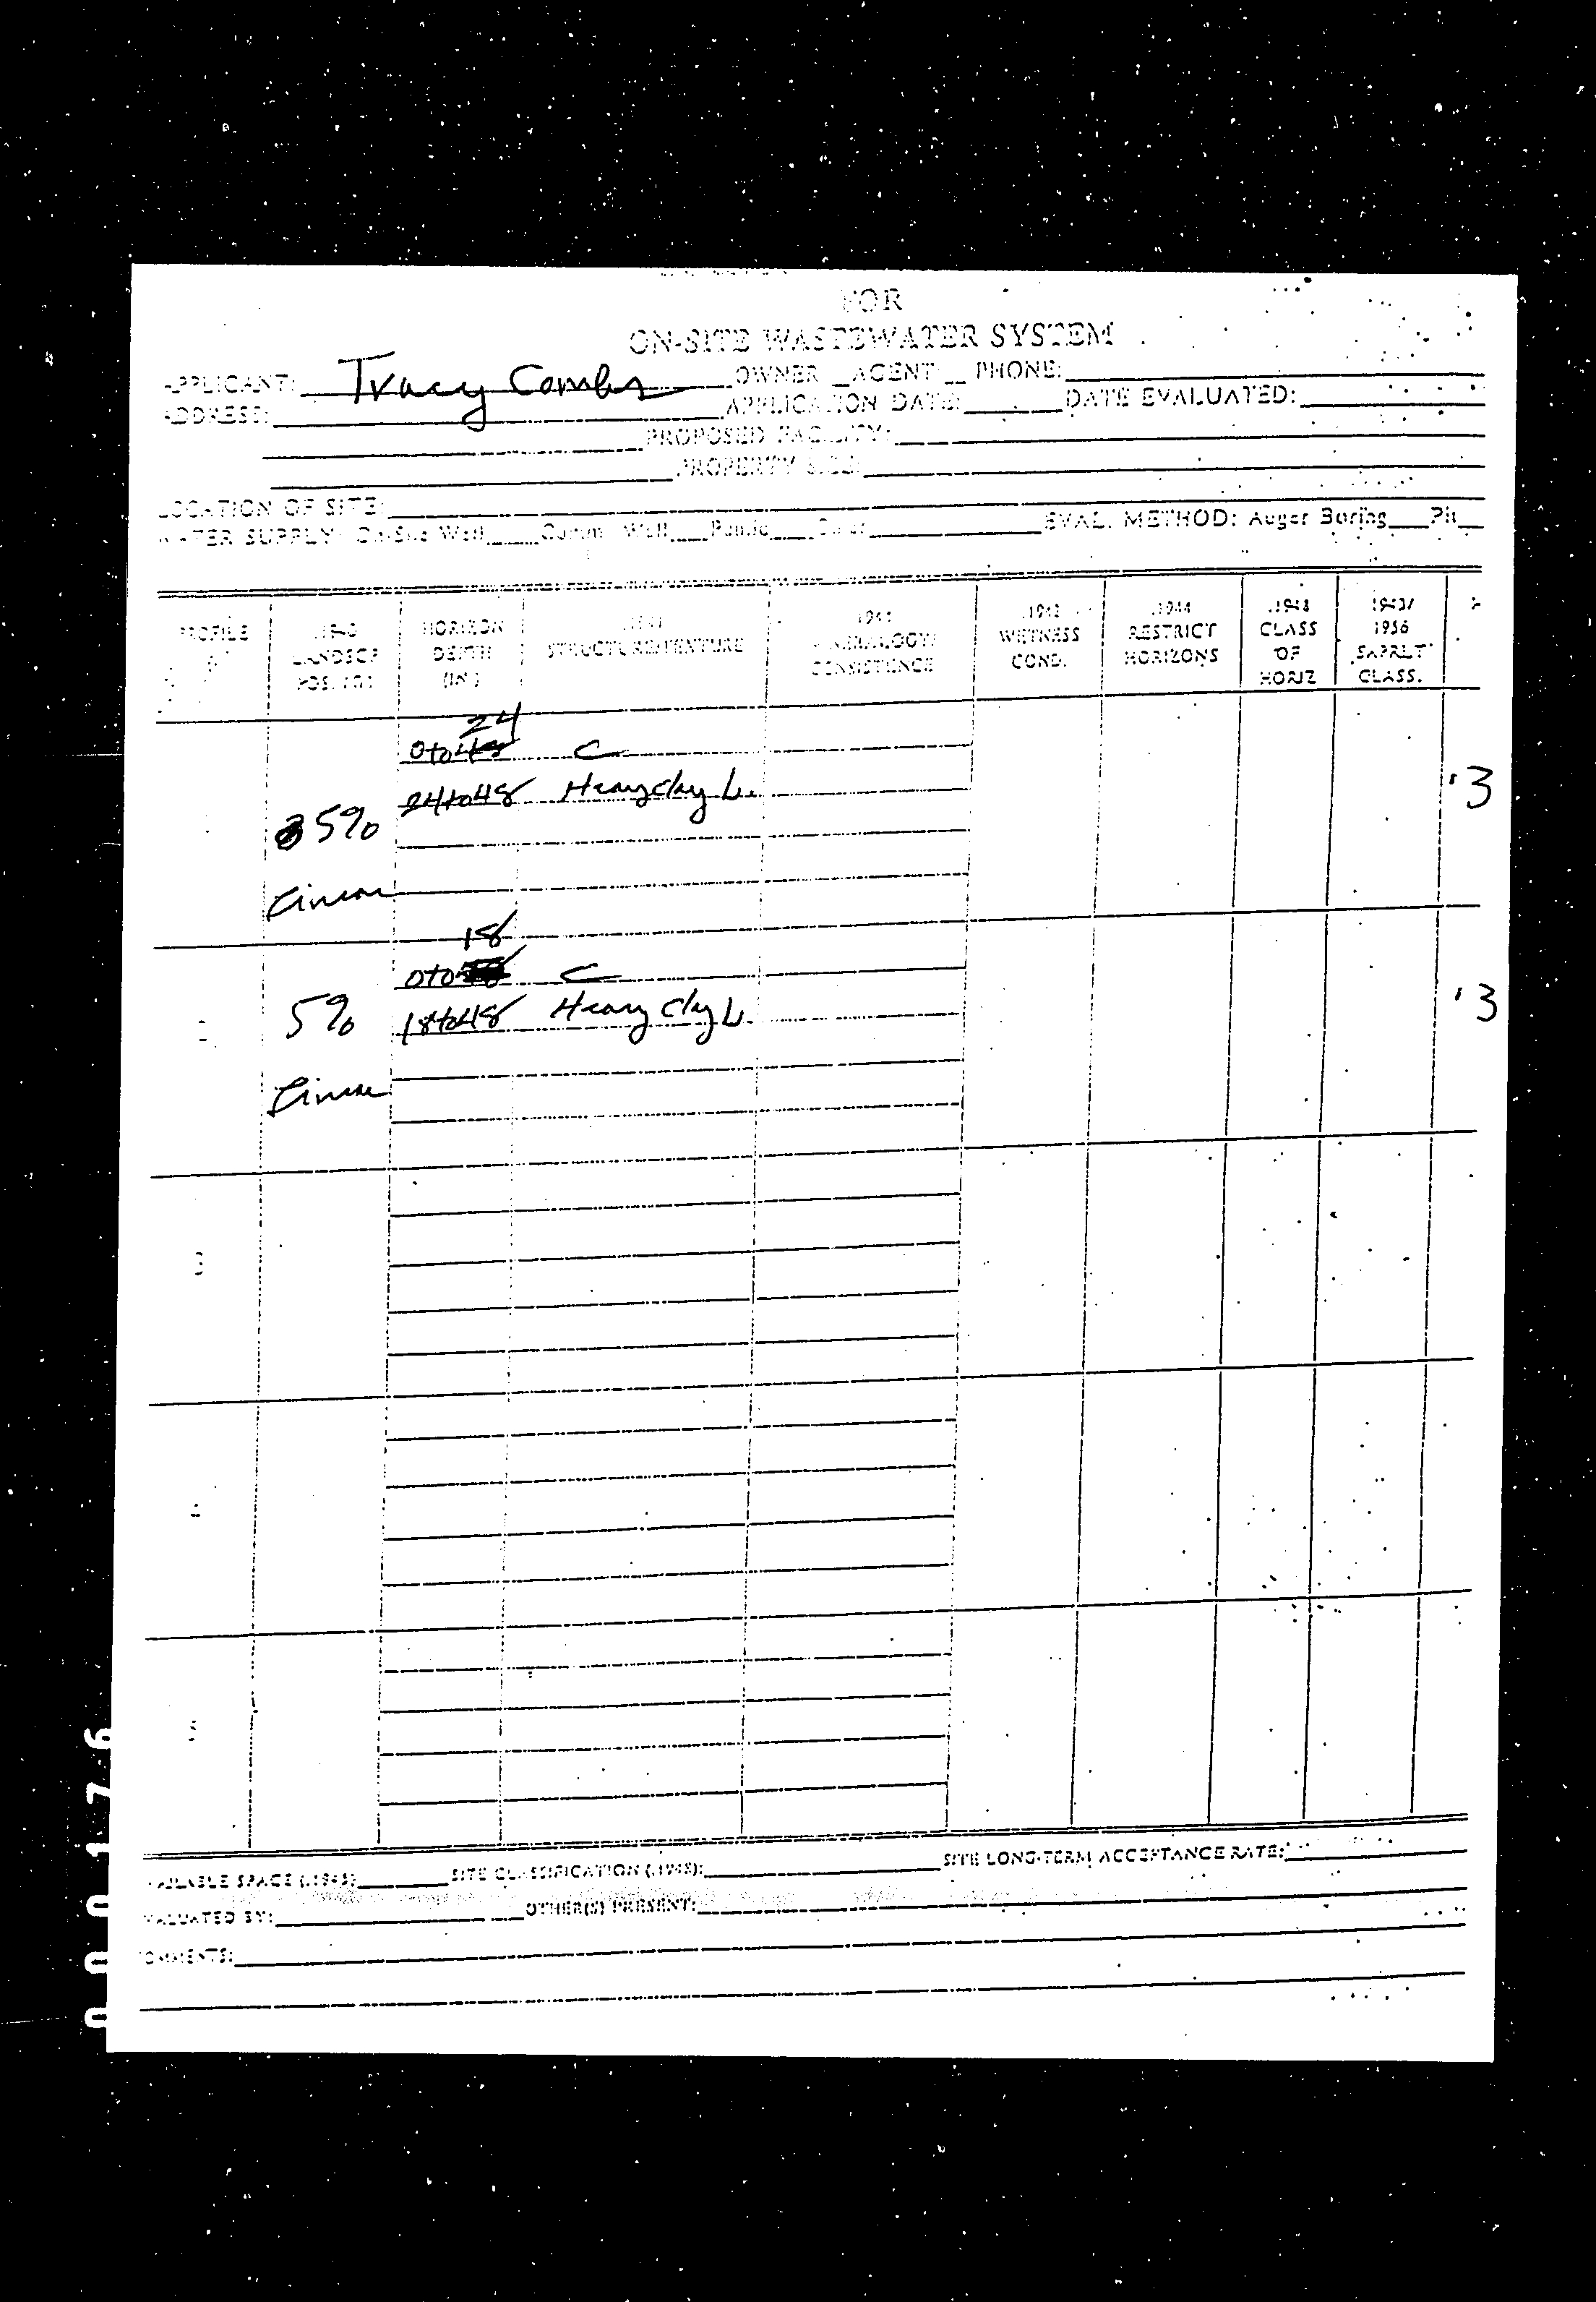 FOR
ON-SITE WASTEWATER SYSTEM
APPLICANT: Tracy Combs OWNER AGENT PHONE:
ADDRESS: APPLICATION DATE: DATE EVALUATED:
PROPOSED FACILITY:
PROPERTY SIZE:
LOCATION OF SITE:
WATER SUPPLY: On-Site Well Comm. Well Public Other EVAL. METHOD: Auger Boring Pit
PROFILE # .1940 LANDSCP POS. HORIZON DEPTH (IN.) .1941 STRUCTURE/TEXTURE .1941 MINERALOGY/ CONSISTENCE .1942 WETNESS COND. .1944 RESTRICT HORIZONS .1948 CLASS OF HORIZ .1943/ 1956 SAPRLT CLASS.
24
0to48 C
24to48 Heavy clay L. .3
5%
Linear
18
0to C
2 5% 18to48 Heavy Clay L. .3
Linear
3
4
5
AVAILABLE SPACE (.1945) SITE CLASSIFICATION (.1948): SITE LONG-TERM ACCEPTANCE RATE:
EVALUATED BY: OTHER(S) PRESENT:
COMMENTS:
000176